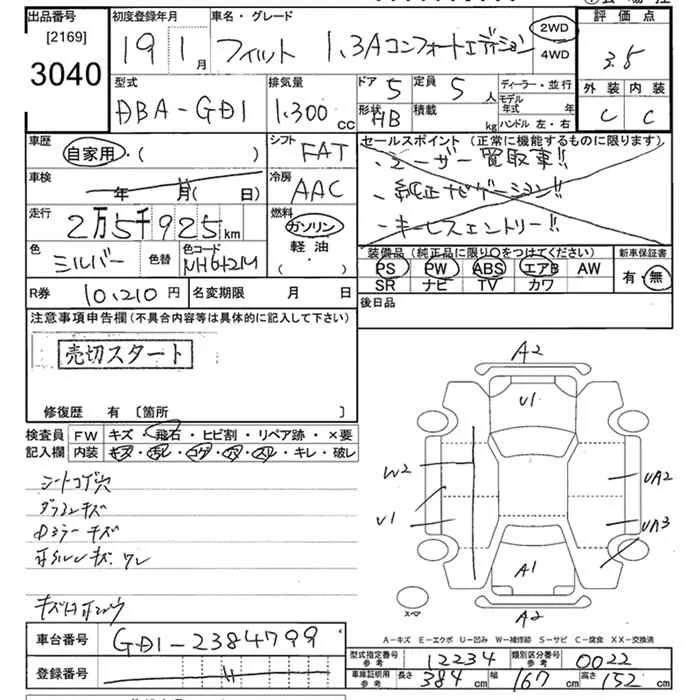 出品番号 初度登録年月 車名・グレード 評価点
[2169] 3040
19年 1月 フィット 1.3Aコンフォートエディション 2WD 4WD 3.5
型式 排気量 ドア 5 定員 5人 ディーラー・並行 外装 内装
DBA-GD1 1,300cc 形状 HB 積載 kg モデル年式 年 C C
ハンドル 左・右
車歴 自家用・( ) シフト FAT セールスポイント (正常に機能するものに限ります)
・ユーザー買取車!!
車検 年 月( 日) 冷房 AAC ・純正ナビゲーション!!
走行 2万5千925km 燃料 ガソリン 軽油 ・( ) ・キーレスエントリー!!
色 シルバー 色替 色コード NH642M 装備品 (純正品に限り○をつけてください) 新車保証書
PS PW ABS エアB AW 有・無
SR ナビ TV カワ
R券 10,210円 名変期限 月 日 後日品
注意事項申告欄 (不具合内容等は具体的に記入して下さい)
売切スタート
修復歴 有 [箇所 ]
検査員 FW キズ・飛石・ヒビ割・リペア跡・×要
記入欄 内装 キズ・汚レ・コゲ・穴・スレ・キレ・破レ
シートコゲ穴
ダッシュキズ
キズ
キズ・ワレ
A2
U1
W2
U1
UA2
UA3
A1
A2
スペア
A-キズ E-エクボ U-凹み W-補修跡 S-サビ C-腐食 XX-交換済
車台番号 GD1-2384799
型式指定番号 参考 12234 類別区分番号 参考 0022
登録番号
車庫証明用 参考 長さ 384cm 幅 167cm 高さ 152cm